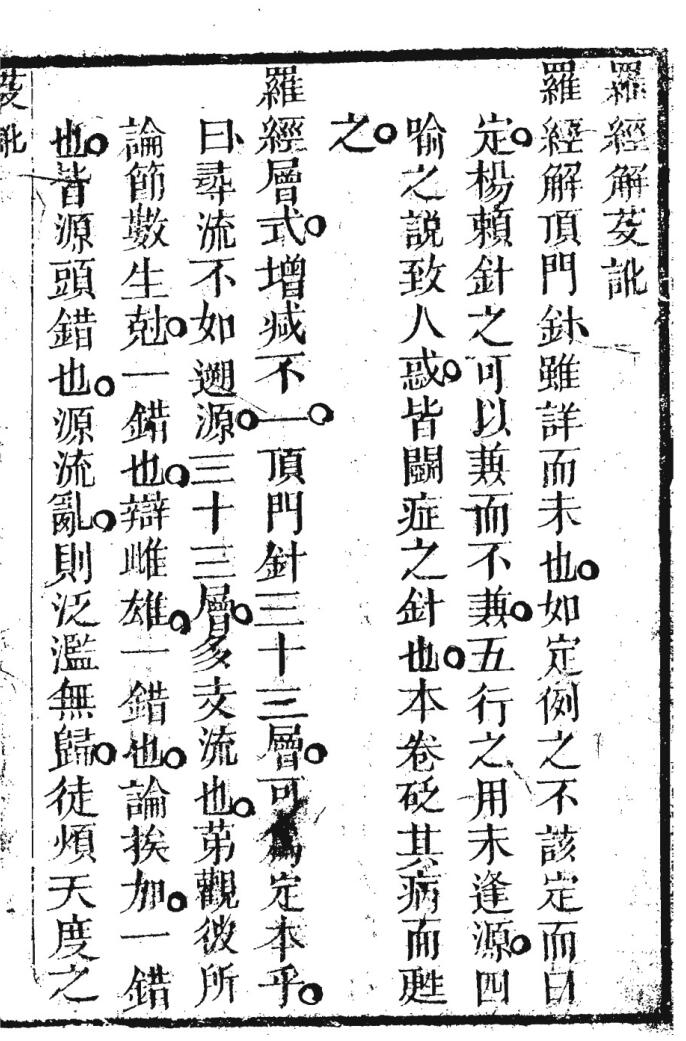 羅經解芟訛
羅經解頂門針雖詳而未也。如定例之不該定而曰
定。楊賴針之可以兼而不兼。五行之用未逢源。四
喻之說致人惑。皆闢症之針也。本卷砭其病而甦
之。
羅經層式。增减不一。頂門針三十三層。可爲定本乎。
曰。尋流不如遡源。三十三層。多支流也。苐觀彼所
論節數生尅。一錯也。辯雌雄。一錯也。論挨加。一錯
也。皆源頭錯也。源流亂。則泛濫無歸。徒煩天度之
芟訛